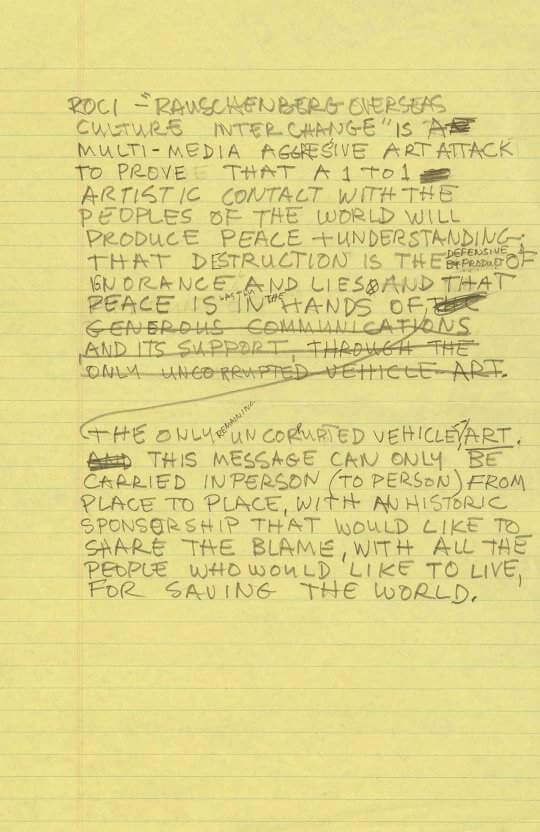 ROCI - "RAUSCHENBERG OVERSEAS
CULTURE INTERCHANGE" IS A
MULTI-MEDIA AGGRESIVE ART ATTACK
TO PROVE THAT A 1 TO 1
ARTISTIC CONTACT WITH THE
PEOPLES OF THE WORLD WILL
PRODUCE PEACE + UNDERSTANDING.
THAT DESTRUCTION IS THE DEFENSIVE BYPRODUCT OF
IGNORANCE AND LIES AND THAT
PEACE IS IN THE HANDS OF,
GENEROUS COMMUNICATIONS
AND ITS SUPPORT, THROUGH THE
ONLY UNCORRUPTED VEHICLE - ART.
THE ONLY REMAINING UNCORRUPTED VEHICLE, ART.
THIS MESSAGE CAN ONLY BE
CARRIED IN PERSON (TO PERSON) FROM
PLACE TO PLACE, WITH AN HISTORIC
SPONSORSHIP THAT WOULD LIKE TO
SHARE THE BLAME, WITH ALL THE
PEOPLE WHO WOULD LIKE TO LIVE,
FOR SAVING THE WORLD.